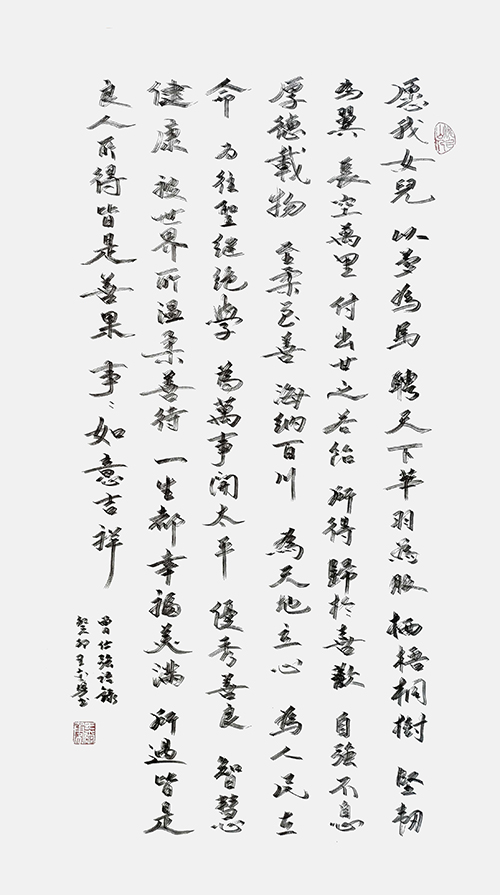 愿我女兒 以夢為馬 騁天下華羽為服 栖梧桐樹 堅韌
為翼 長空萬里 付出甘之若飴 所得歸於喜歡 自強不息
厚德載物 至柔至善 海納百川 為天地立心 為人民立
命 為往聖繼絕學 為萬事開太平 優秀善良 智慧
健康 被世界所溫柔善待 一生都幸福美滿 所遇皆是
良人所得皆是善果 事〻如意吉祥
曾仕強語錄
癸卯